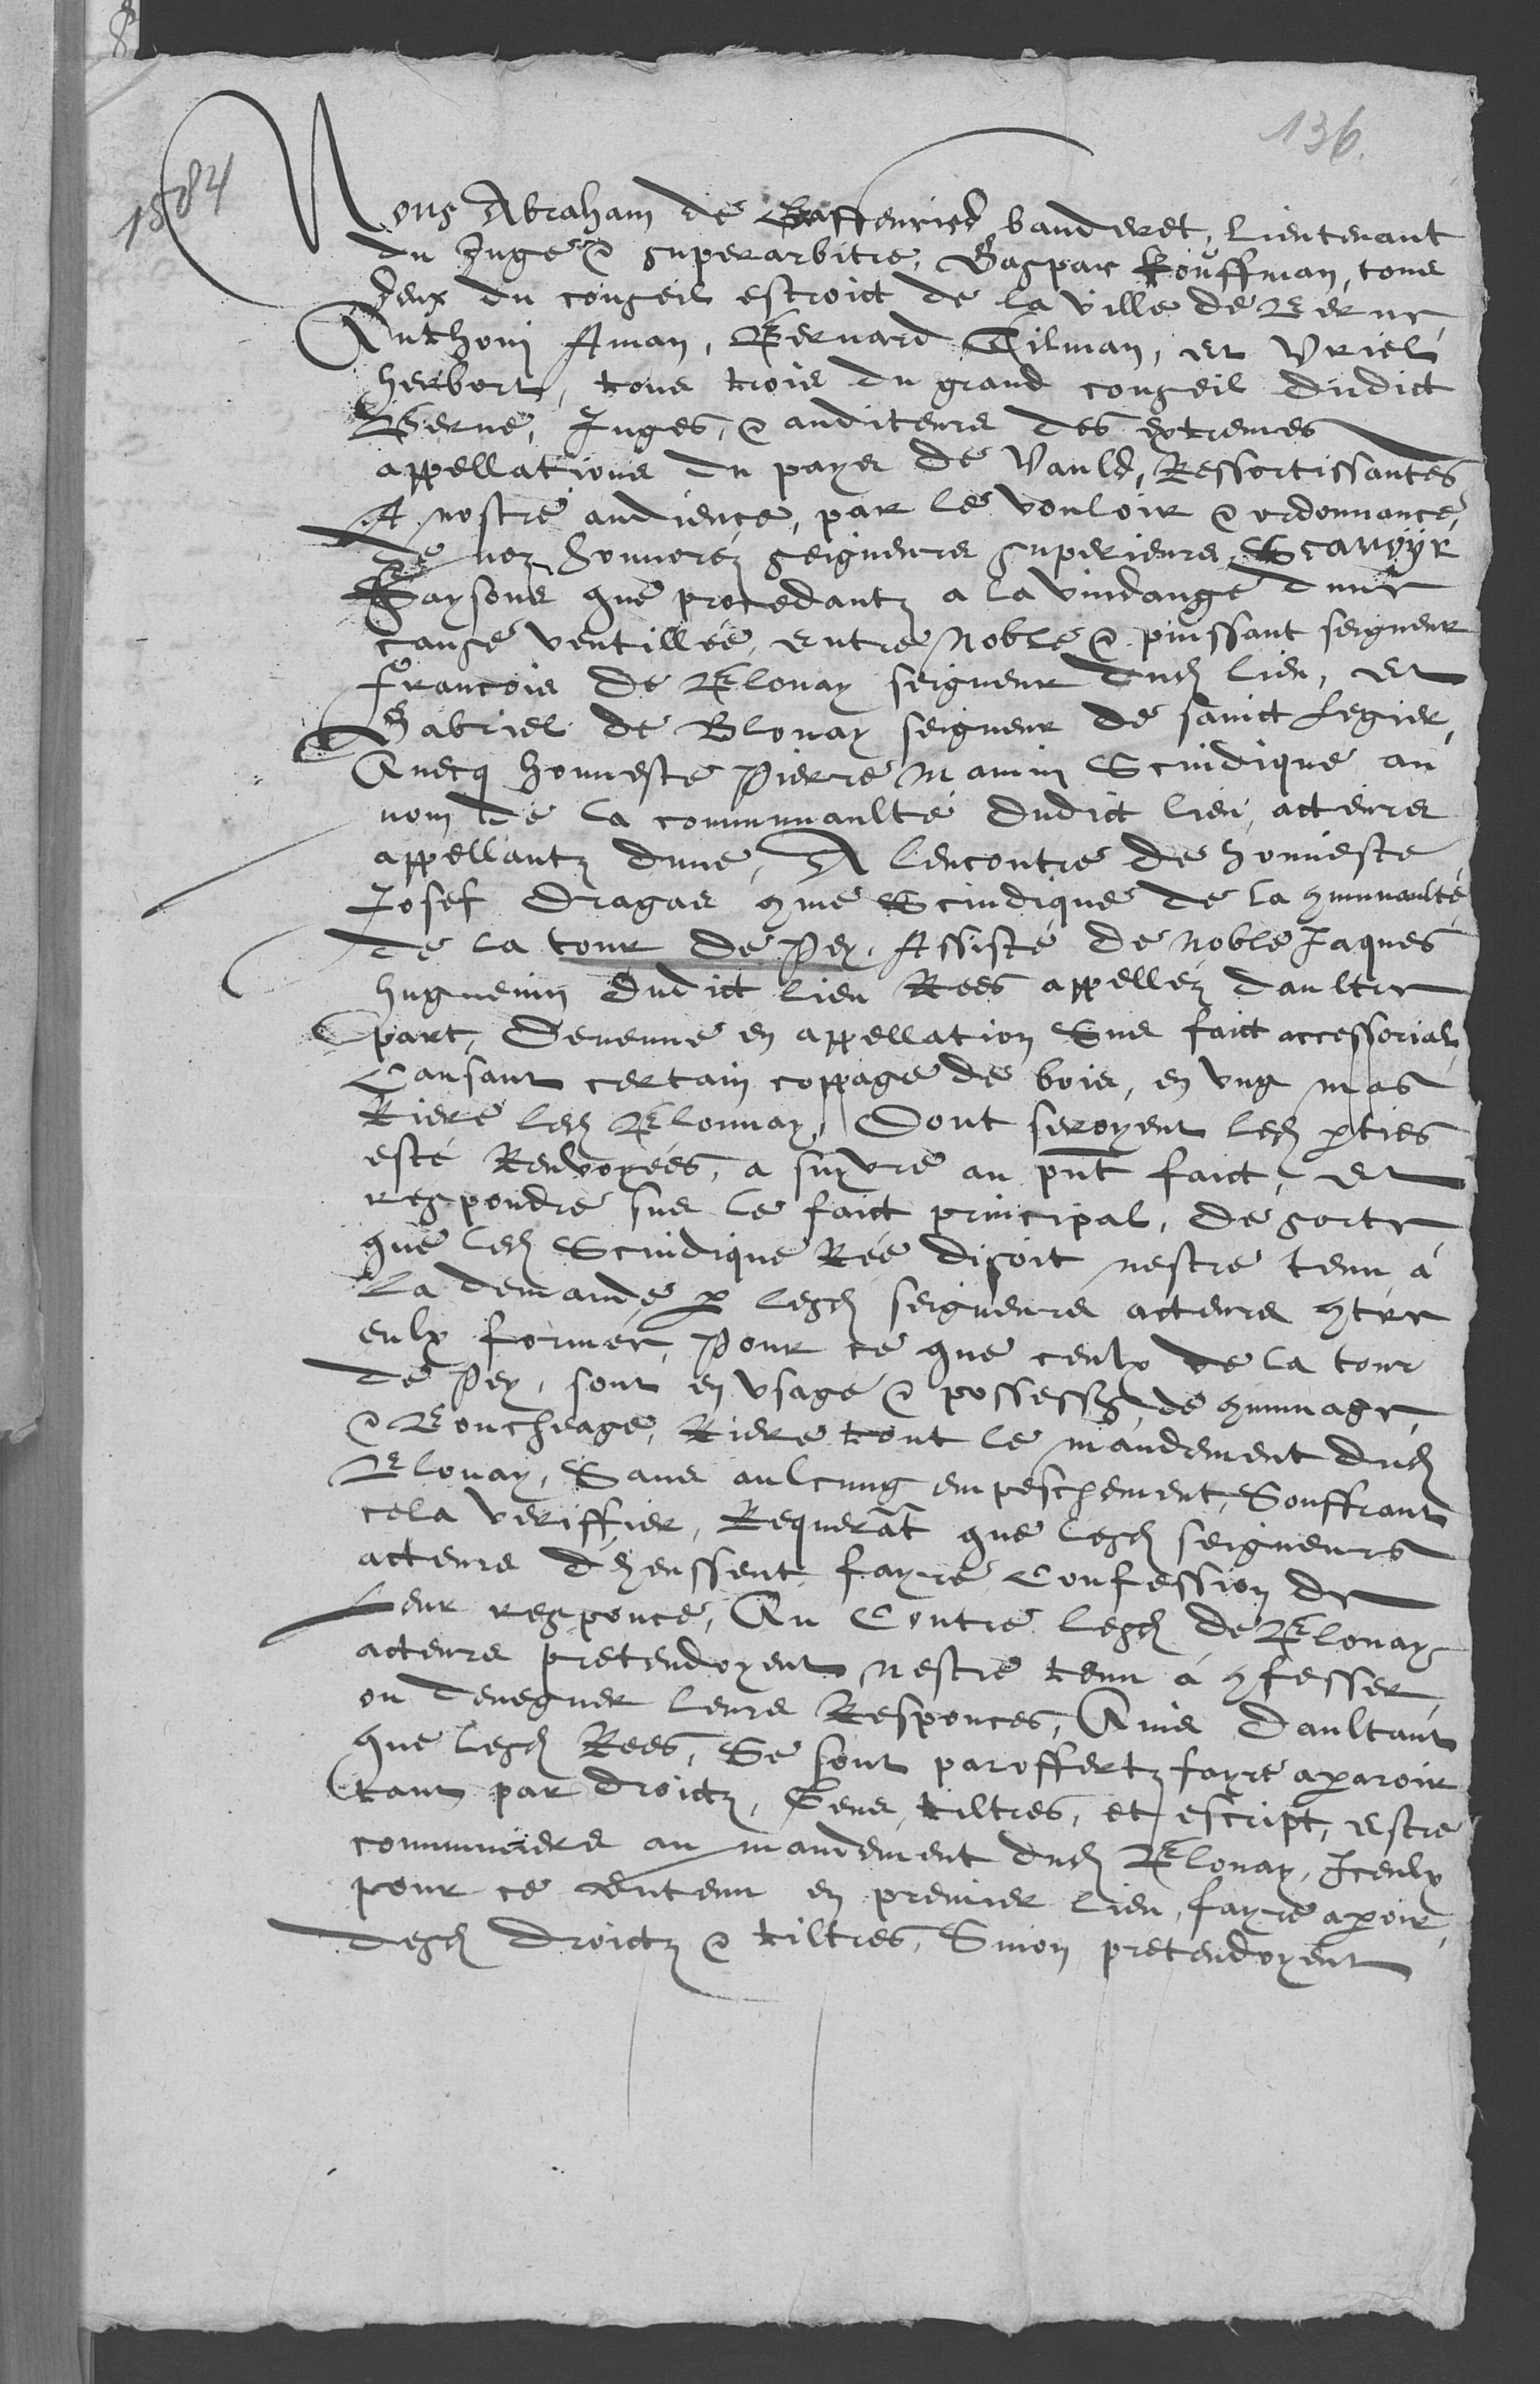 136.
1584
Nous Abraham de Graffenried banderet, lieutenant
du Juge & superarbitre, Gaspar Kouffman, tous
deux du conseil estroict de la ville de Berne,
Anthoni Aman, Bernard Tilman, et Uriel
Herbort, tous trois du grand conseil dudict
Berne, Juges, & auditeurs des extremes
appellations du pays de Vauld, Ressortissantes
A nostre audience, par le vouloir & ordonnance,
de noz honnorez seigneurs superieurs, Scavoyr
Faysons que procedantz a la vuidange dune
cause ventillée, entre Noble & puissant seigneur
francois de Blonay seigneur dud lieu, et
Gabriel de Blonay seigneur de sainct Legier,
Avecq honneste Pierre Mamin Scindique au
nom de la communaulté dudict lieu, acteurs
appellantz dune, A lencontre de honneste
Josef Dragas cme Scindique de la cmmunaulté
de la tour de Pey, Assisté de Noble Jaques
huguenin dudict lieu Rees appellez daultre
part, Devenue en appellation Sus faict accessorial,
Causant certain coppage de bois, en ung mas
Riere led Blonnay, Dont seroyent led pties
esté Renvoyées, a suyvre au pnt faict, et
respondre sus le faict principal, de sorte
que led Scindique Rée disoit nestre tenu á
la demande p lesd seigneurs acteurs cntre
eulx formée, Pour ce que ceulx de la tour
de Pey, sont en usage & possession, de cmmunage,
& Boucheage, Riere tout le mandement dud
Blonay, Sans aulcung empeschement, Souffrant
cela veriffier, Requerat que lesd seigneurs
acteurs dheussent fayre Confession de
Leur responce, Au Contre lesd de Blonay
acteurs pretendoyent Nestre tenu á cfesser
ou denegner leurs Responces, Ains daultant
que lesd Rees, Se sont paroffertz fayre aparoir
tant par droictz, Gens, tiltres, et escript, estre
communiers au mandement dud Blonay, Iceulx
pour ce entenu en premier lieu, fayre apoir,
desd droictz & tiltres, Sinon pretendoyent